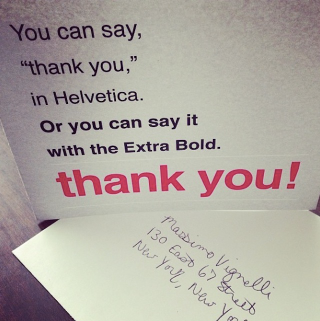 You can say,
“thank you,”
in Helvetica.
Or you can say it
with the Extra Bold.
thank you!
Massimo Vignelli
130 East 67 Street
New York, New York